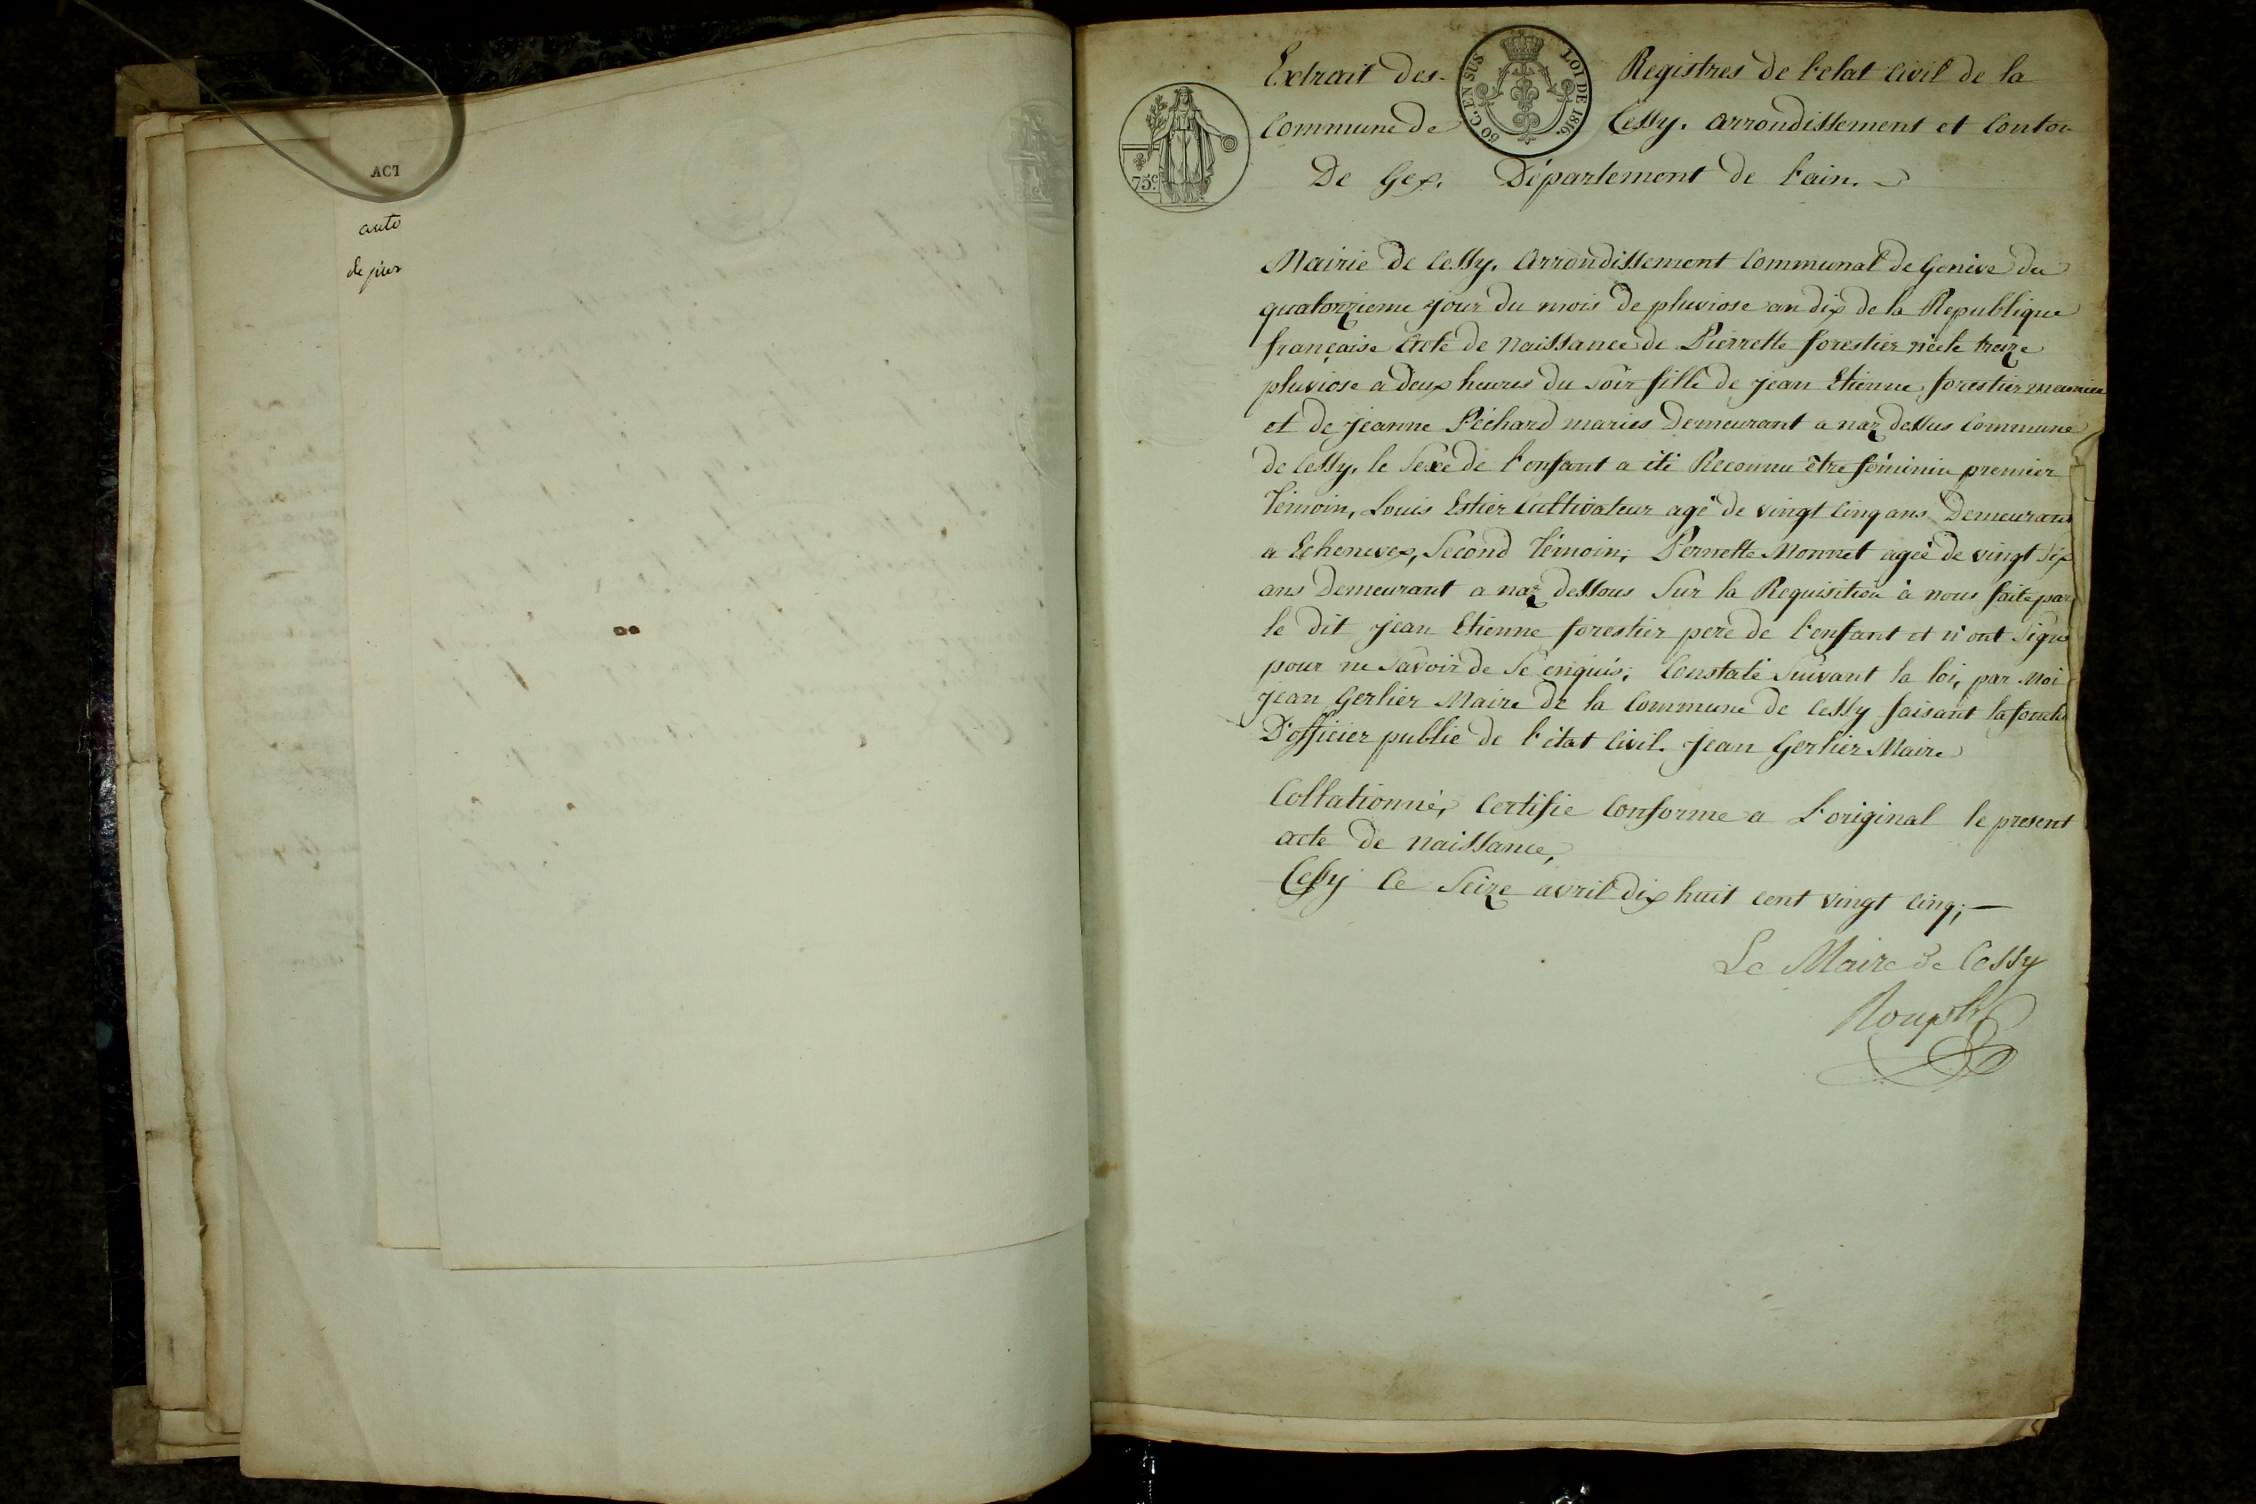 ACT
auto
de jui
Extrait des Registres de l'etat Civil de la
Commune de Cessy. arrondissement et Canton
De Gex. Département de l'ain.
50 C. EN SUS
LOI DE 1816.
75 C.
Mairie de Cessy. Arrondissement Communal de Genève du
quatorzieme jour du mois de pluviose an dix de la Republique
française Acte de Naissance de Pierrette forestier née le treize
pluviose a deux heures du soir fille de jean Etienne forestier meunier
et de jeanne Péchard mariés Demeurant a naz dessus Commune
de Cessy, le Sexe de l'enfant a été Reconnu être féminin premier
Témoin, Louis Estier Cultivateur agé de vingt Cinq ans Demeurant
a Echenevex, Second Témoin, Pernette Monnet agée de vingt Six
ans Demeurant a naz dessous Sur la Requisition à nous faite par
le dit jean Etienne forestier pere de l'enfant et n'ont Signé
pour ne Savoir de Ce enquis, Constaté Suivant la loi, par Moi
jean Gerlier Maire de la Commune de Cessy faisant la foncti
D'officier public de l'état Civil. Jean Gerlier Maire
Collationné, Certifie Conforme a L'original le present
acte de naissance,
Cessy Ce Seize avril dix huit cent vingt Cinq; —
Le Maire de Cessy